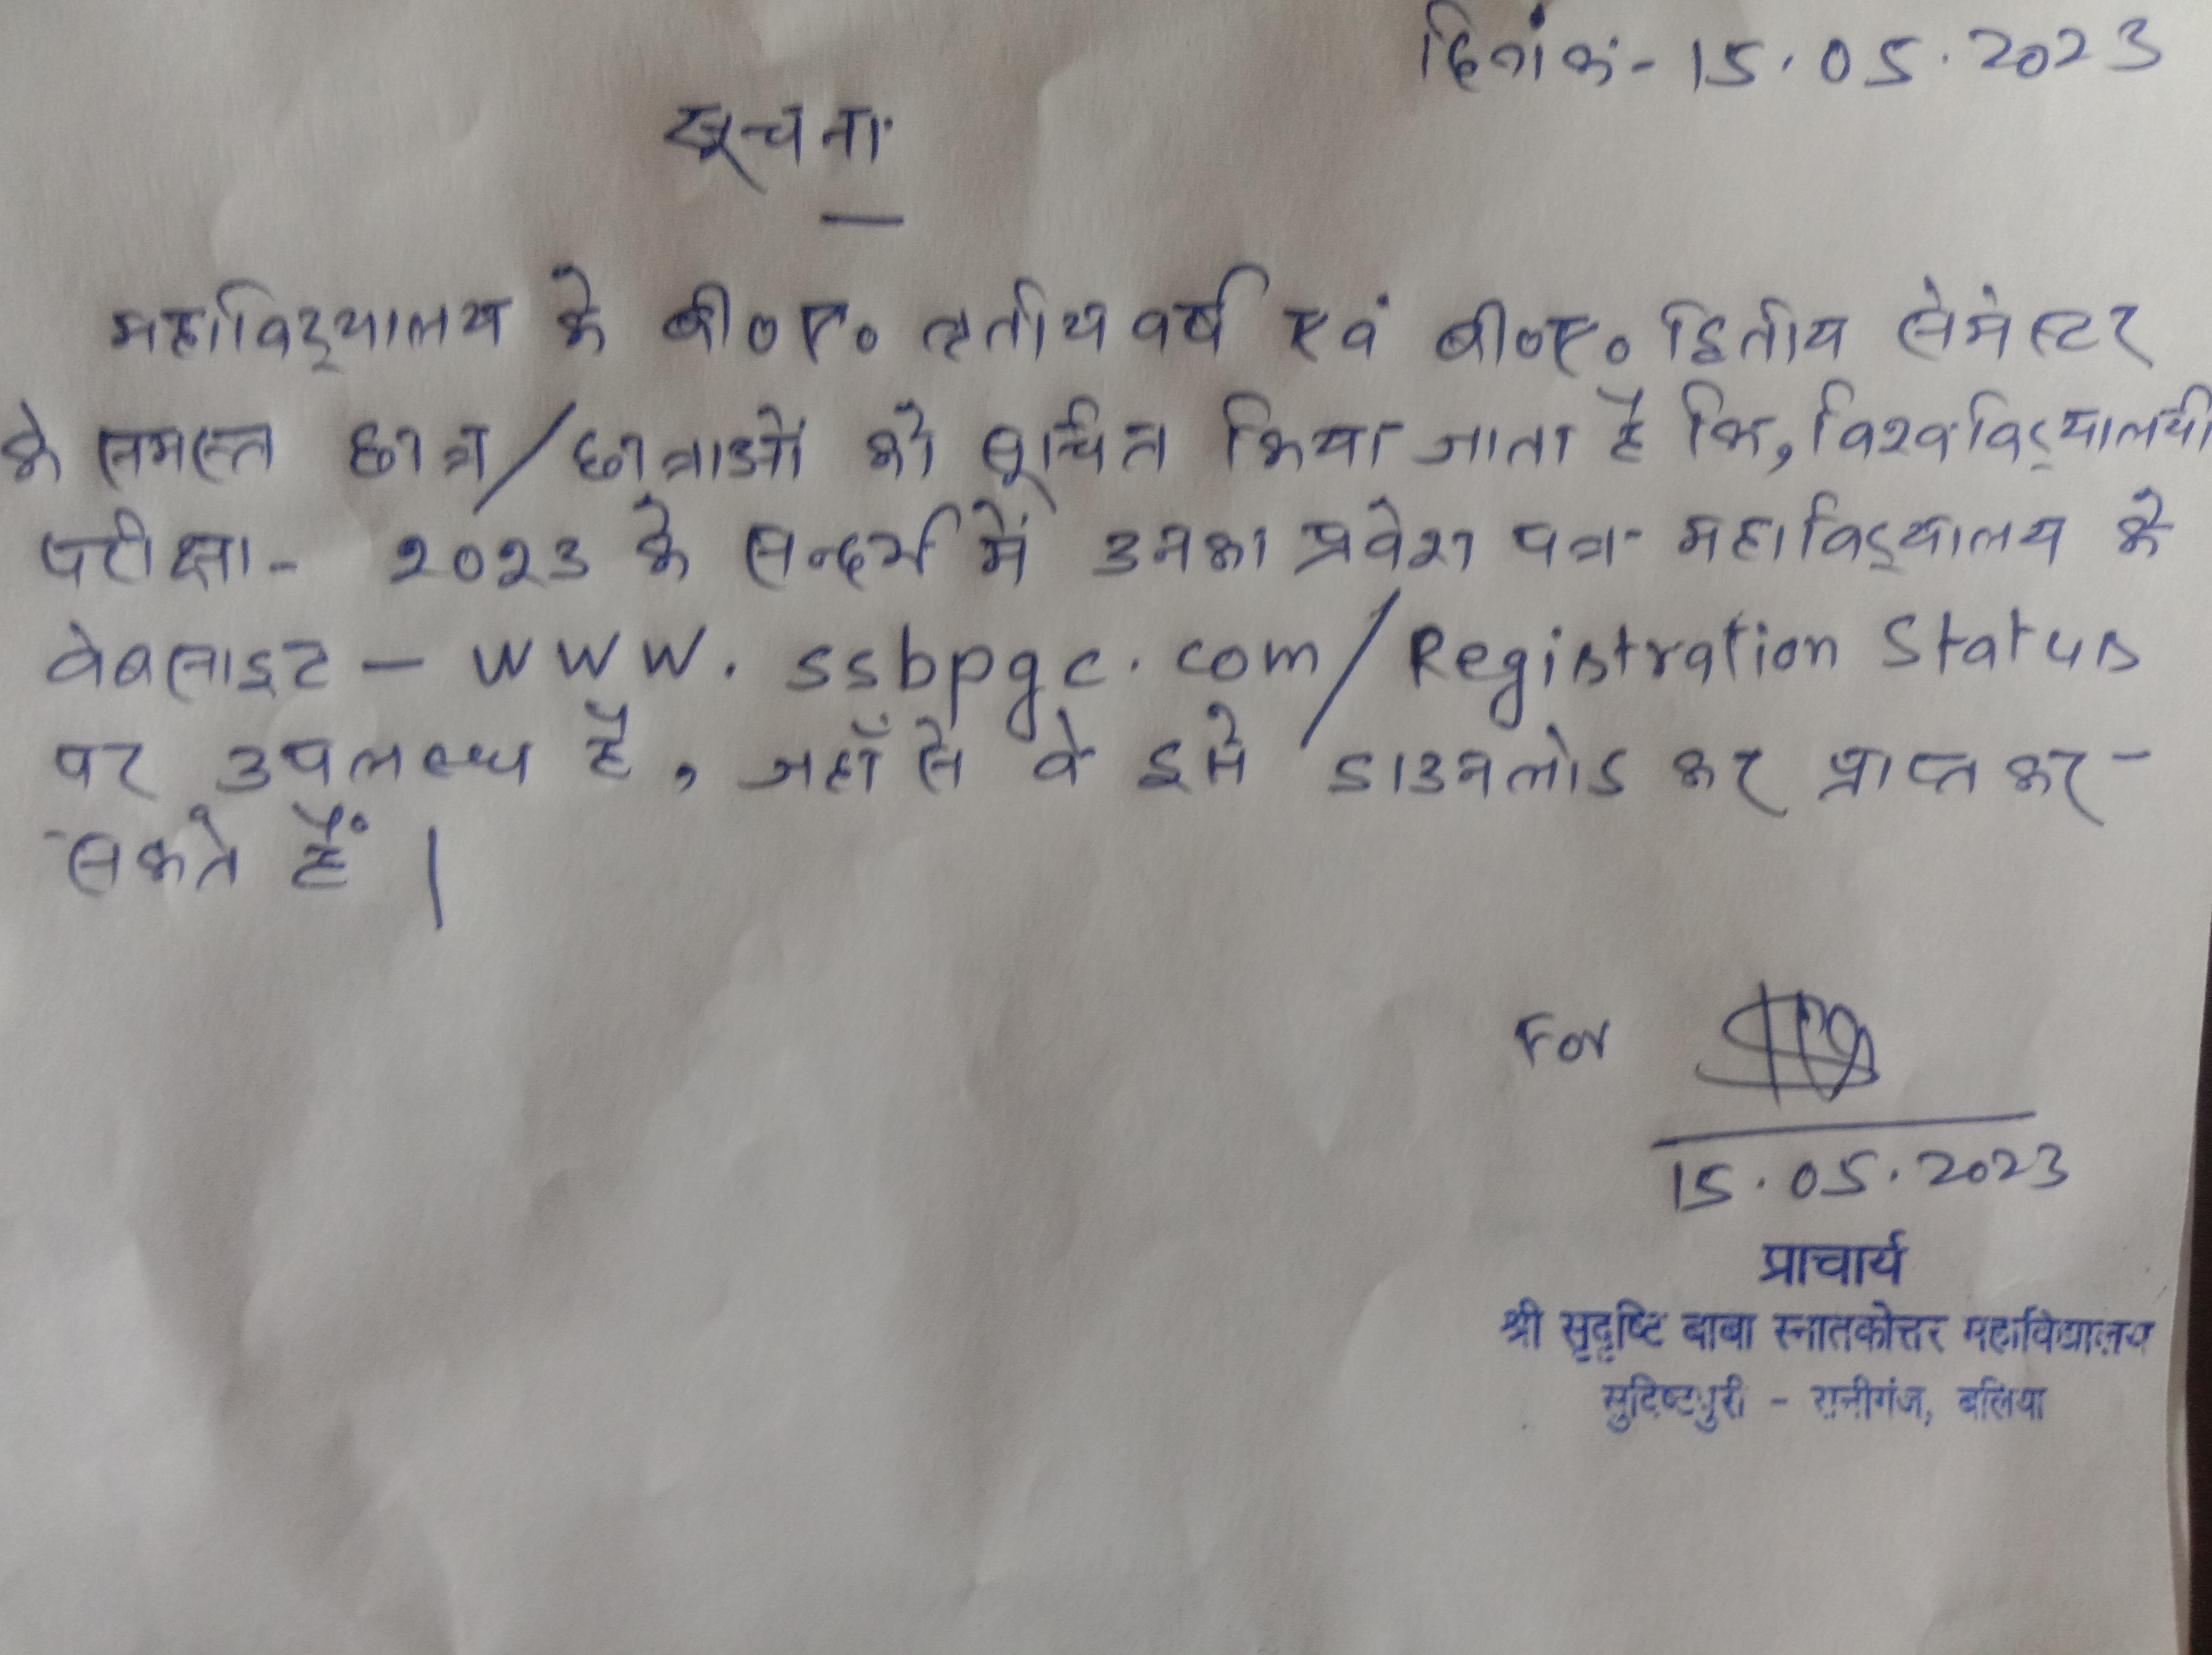 दिनांक:- 15.05.2023
सूचना
महाविद्यालय के बी०ए० तृतीय वर्ष एवं बी०ए० द्वितीय सेमेस्टर
के समस्त छात्र/छात्राओं को सूचित किया जाता है कि, विश्वविद्यालयी
परीक्षा- २०२३ के सन्दर्भ में उनका प्रवेश पत्र महाविद्यालय के
वेबसाइट – www.ssbpgc.com/Registration Status
पर उपलब्ध है, जहाँ से वे इसे डाउनलोड कर प्राप्त कर-
-सकते हैं।
For
15.05.2023
प्राचार्य
श्री सुदृष्टि बाबा स्नातकोत्तर महाविद्यालय
सुदिष्टपुरी - रानीगंज, बलिया